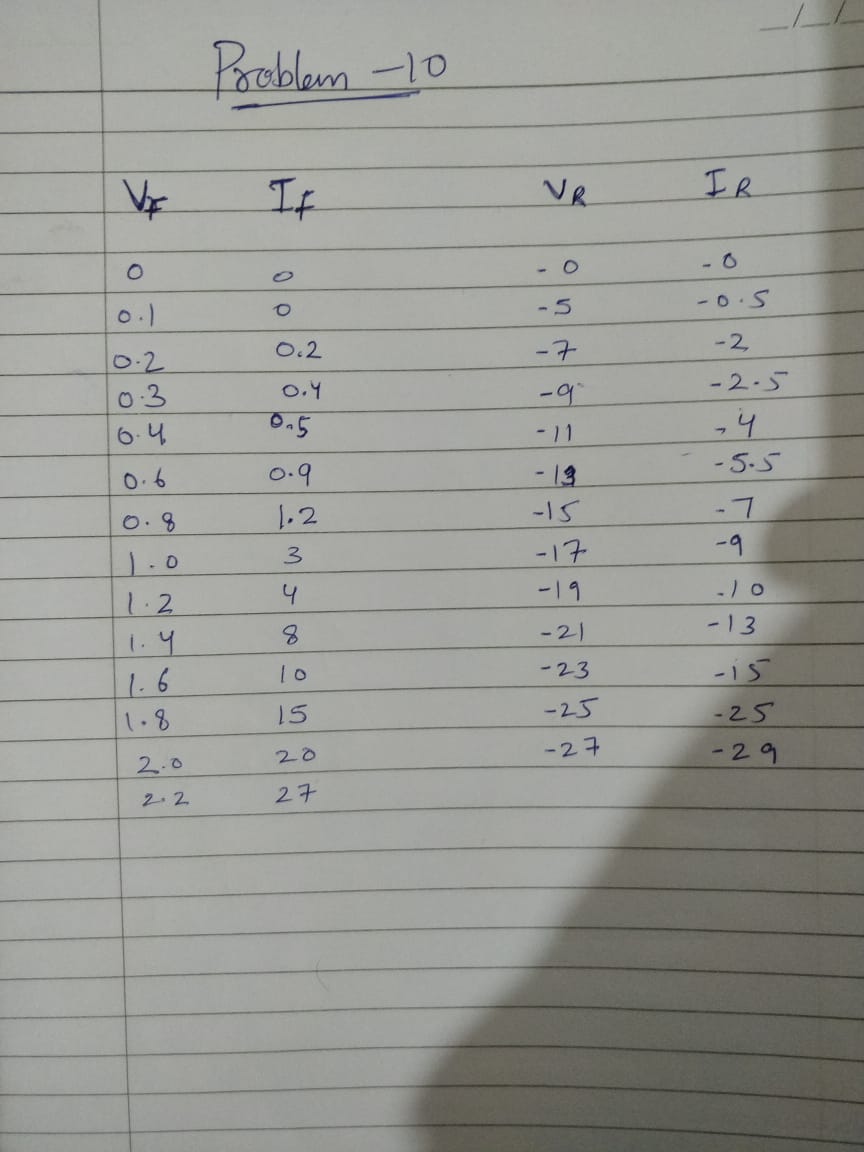 _/_/_
Problem -10
VF IF VR IR
0 0 -0 -0
0.1 0 -5 -0.5
0.2 0.2 -7 -2
0.3 0.4 -9 -2.5
0.4 0.5 -11 -4
0.6 0.9 -13 -5.5
0.8 1.2 -15 -7
1.0 3 -17 -9
1.2 4 -19 -10
1.4 8 -21 -13
1.6 10 -23 -15
1.8 15 -25 -25
2.0 20 -27 -29
2.2 27